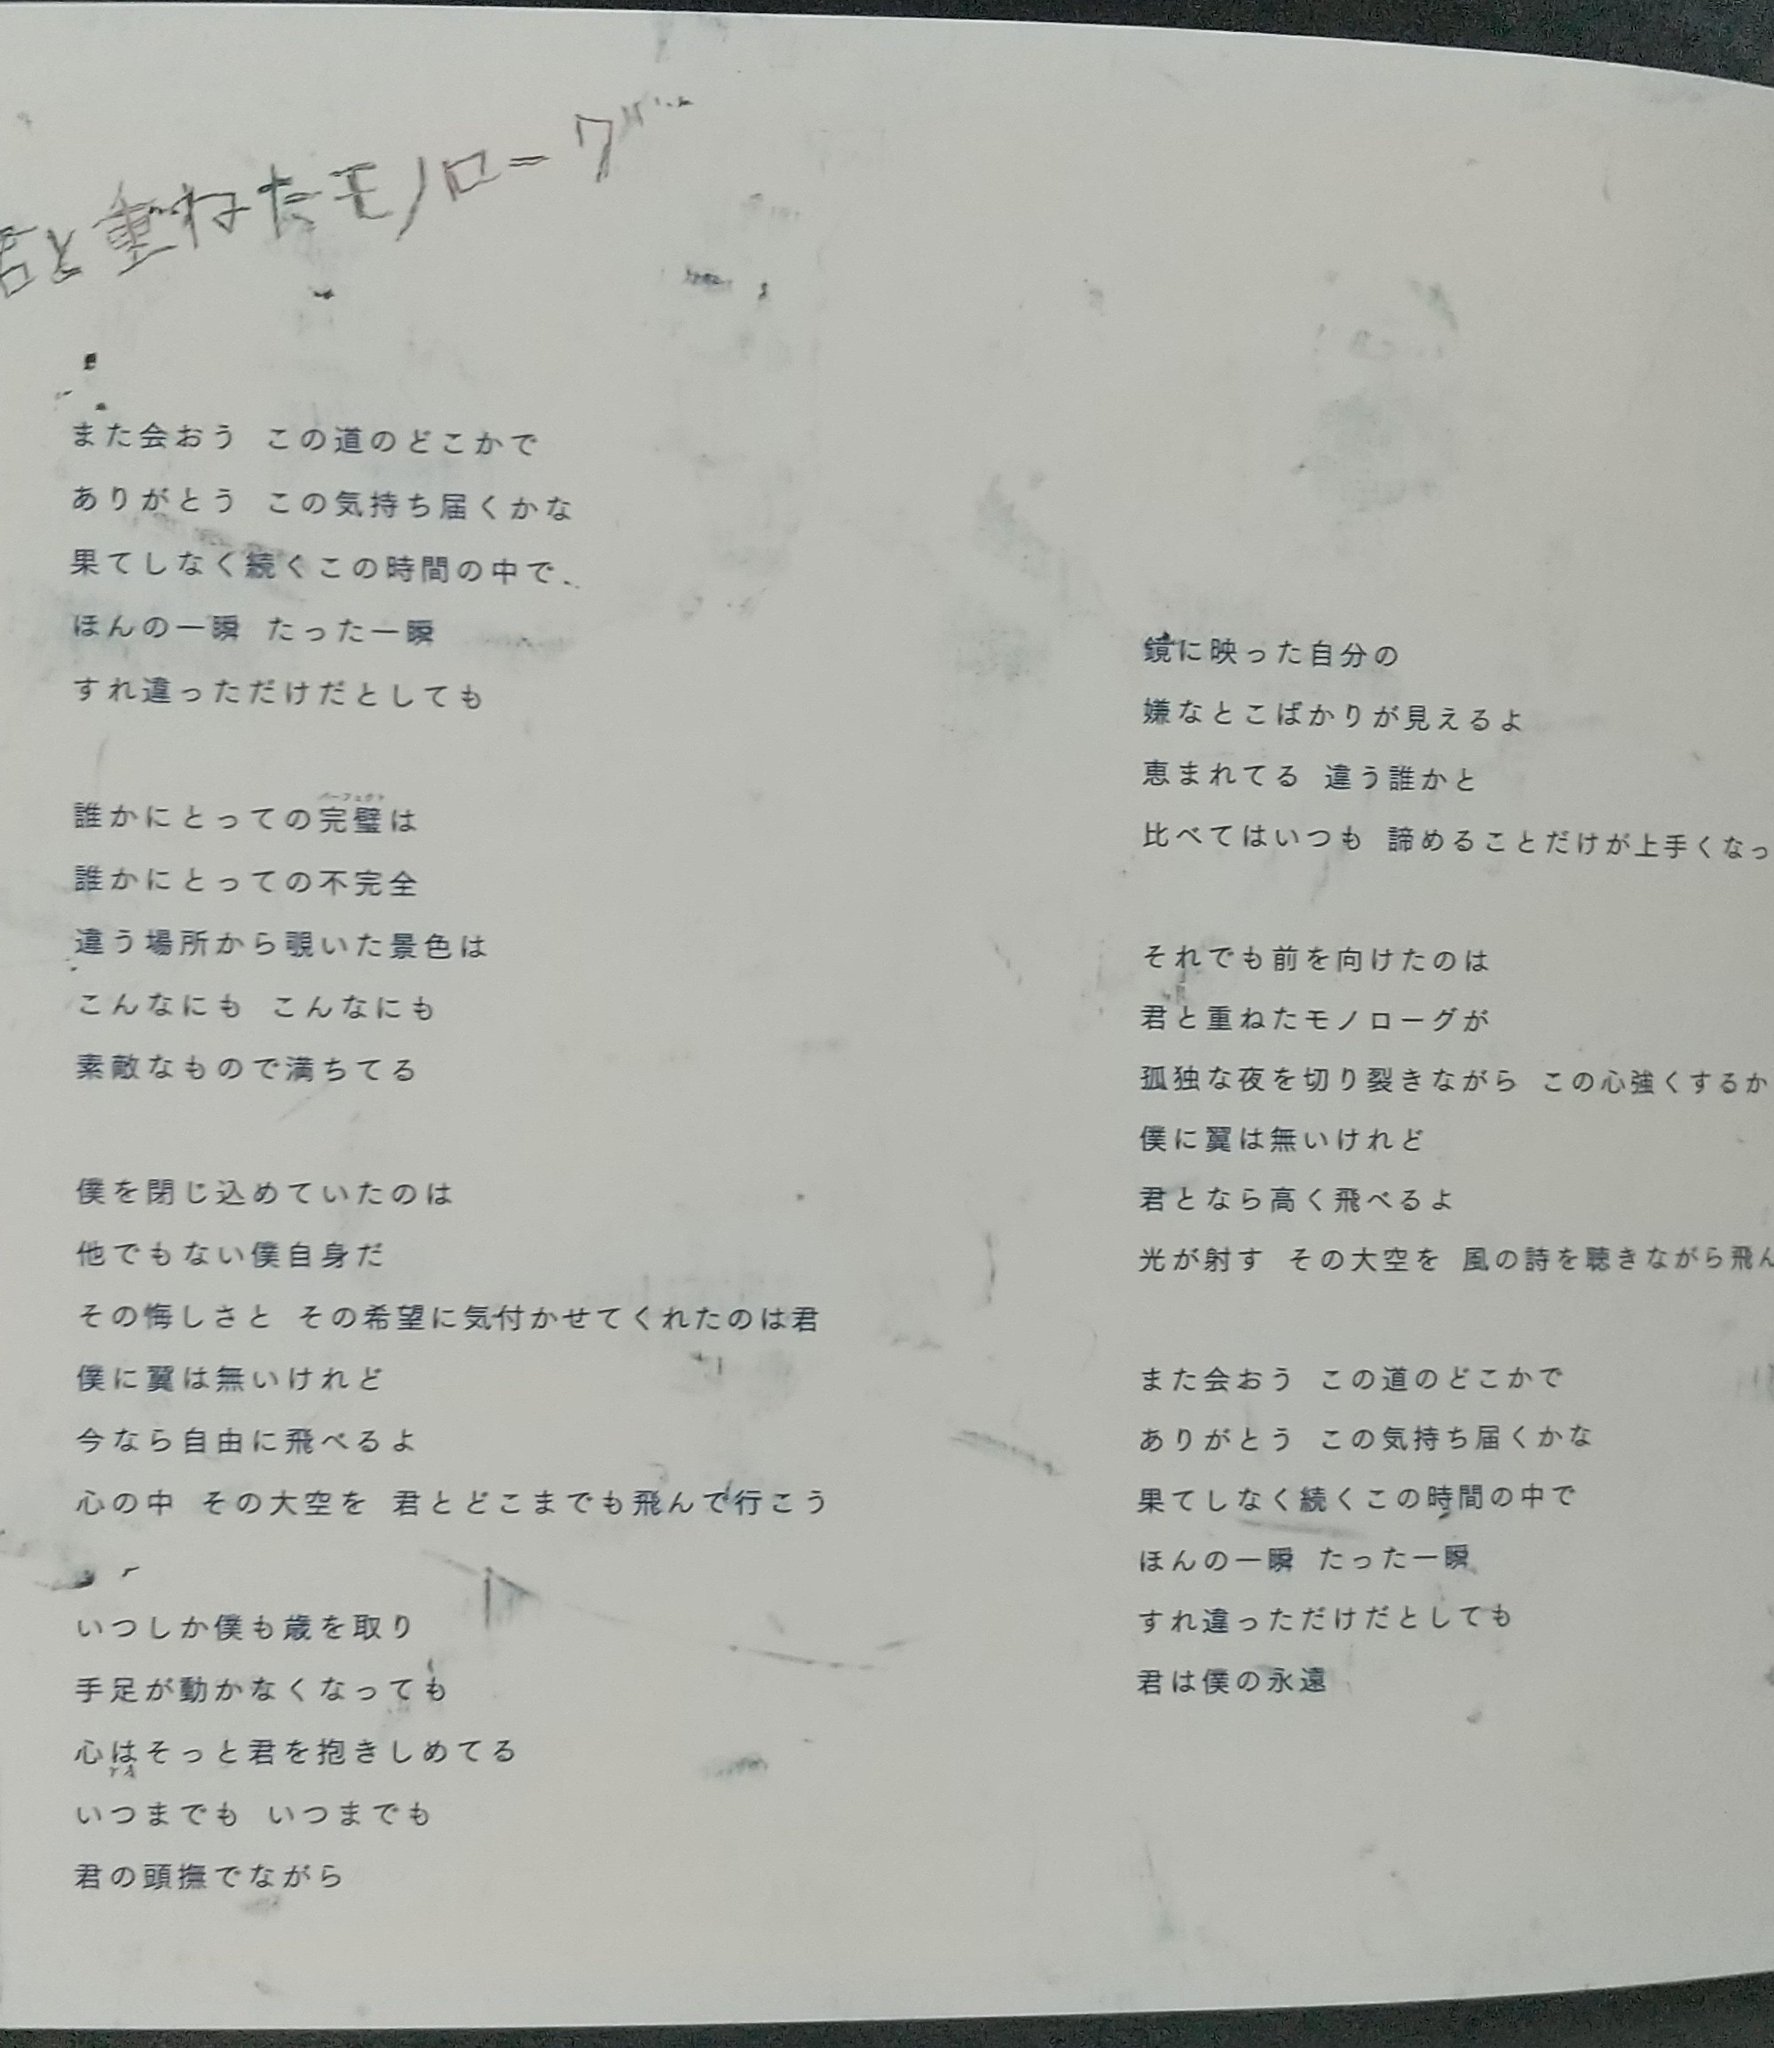 君と重ねたモノローグ
また会おう この道のどこかで
ありがとう この気持ち届くかな
果てしなく続くこの時間の中で、
ほんの一瞬 たった一瞬
すれ違っただけだとしても
パーフェクト
誰かにとっての完璧は
誰かにとっての不完全
違う場所から覗いた景色は
こんなにも こんなにも
素敵なもので満ちてる
僕を閉じ込めていたのは
他でもない僕自身だ
その悔しさと その希望に気付かせてくれたのは君
僕に翼は無いけれど
今なら自由に飛べるよ
心の中 その大空を 君とどこまでも飛んで行こう
いつしか僕も歳を取り
手足が動かなくなっても
心はそっと君を抱きしめてる
いつまでも いつまでも
君の頭撫でながら
鏡に映った自分の
嫌なとこばかりが見えるよ
恵まれてる 違う誰かと
比べてはいつも 諦めることだけが上手くなっ
それでも前を向けたのは
君と重ねたモノローグが
孤独な夜を切り裂きながら この心強くするか
僕に翼は無いけれど
君となら高く飛べるよ
光が射す その大空を 風の詩を聴きながら飛ん
また会おう この道のどこかで
ありがとう この気持ち届くかな
果てしなく続くこの時間の中で
ほんの一瞬 たった一瞬
すれ違っただけだとしても
君は僕の永遠